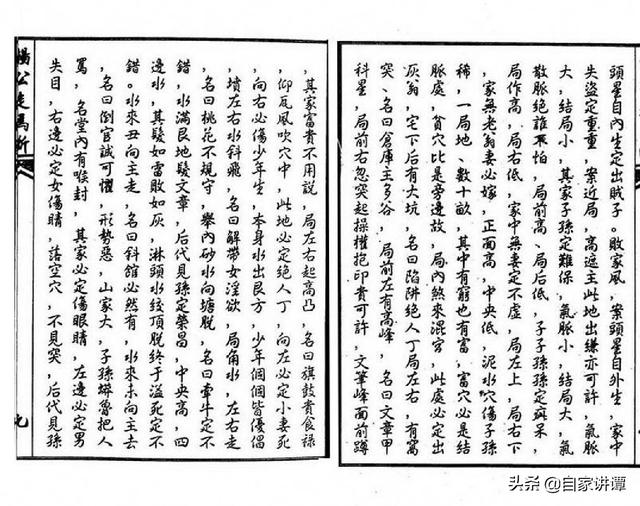 頭星自內生定出賊子。敗家風,案頭星自外生,家中
失盜定重重,案近局,高遮主此地出嫌亦可許,氣脈
大,結局小,其家子孫定難保,氣脈小,結局大,氣
散脈絕誰不怕,局前高、局后低,子子孫孫定與呆,
局作高,局右低,家中無妻定不虛,局左上,局右下
,家無老翁妻必嫁,正面高,中央低,泥水穴傷子孫
稀,一局地、數十畝,其中有窮也有富,富穴必是結
脈處,貧穴比是旁邊故,局內煞來混宮,此處必定出
灰翁,宅下后有大坑,名曰陷阱絕人丁局左右,有窩
突、名曰倉庫主多谷,局前左有高峰,名曰文章甲
科星,局前右忽突起操權抱印貴可許,文筆峰面前蹲
,其家富貴不用說,局左右起高凸,名曰旗鼓貴食祿
,仰瓦風吹穴中,此地必定絕人丁,向左必定小妻死
,向右必傷少年生,本身水出艮方,少年個個皆優倡
,墳左右水斜飛,名曰解帶女淫欲,局角水,左右走
,名曰桃花不規守,舉內砂水向塘脫,名曰牽牛定不
錯,水滿艮地髮文章,后代見孫定榮昌,中央高,四
邊水,其髮如雷敗如灰,淋頭水絞頂脫終于溢死定不
錯。水來丑向主走,名曰斜館必然有,水來未向主去
,名曰倒官誠可懼,形勢惡,山家大,子孫嫾魯把人
罵,名堂內有喉封,其家必定傷眼睛,左邊必定男
失目,右邊必定女傷睛,諾空穴,不見突,后代見孫
楊公走馬斷
九
头条 @自家讲谭